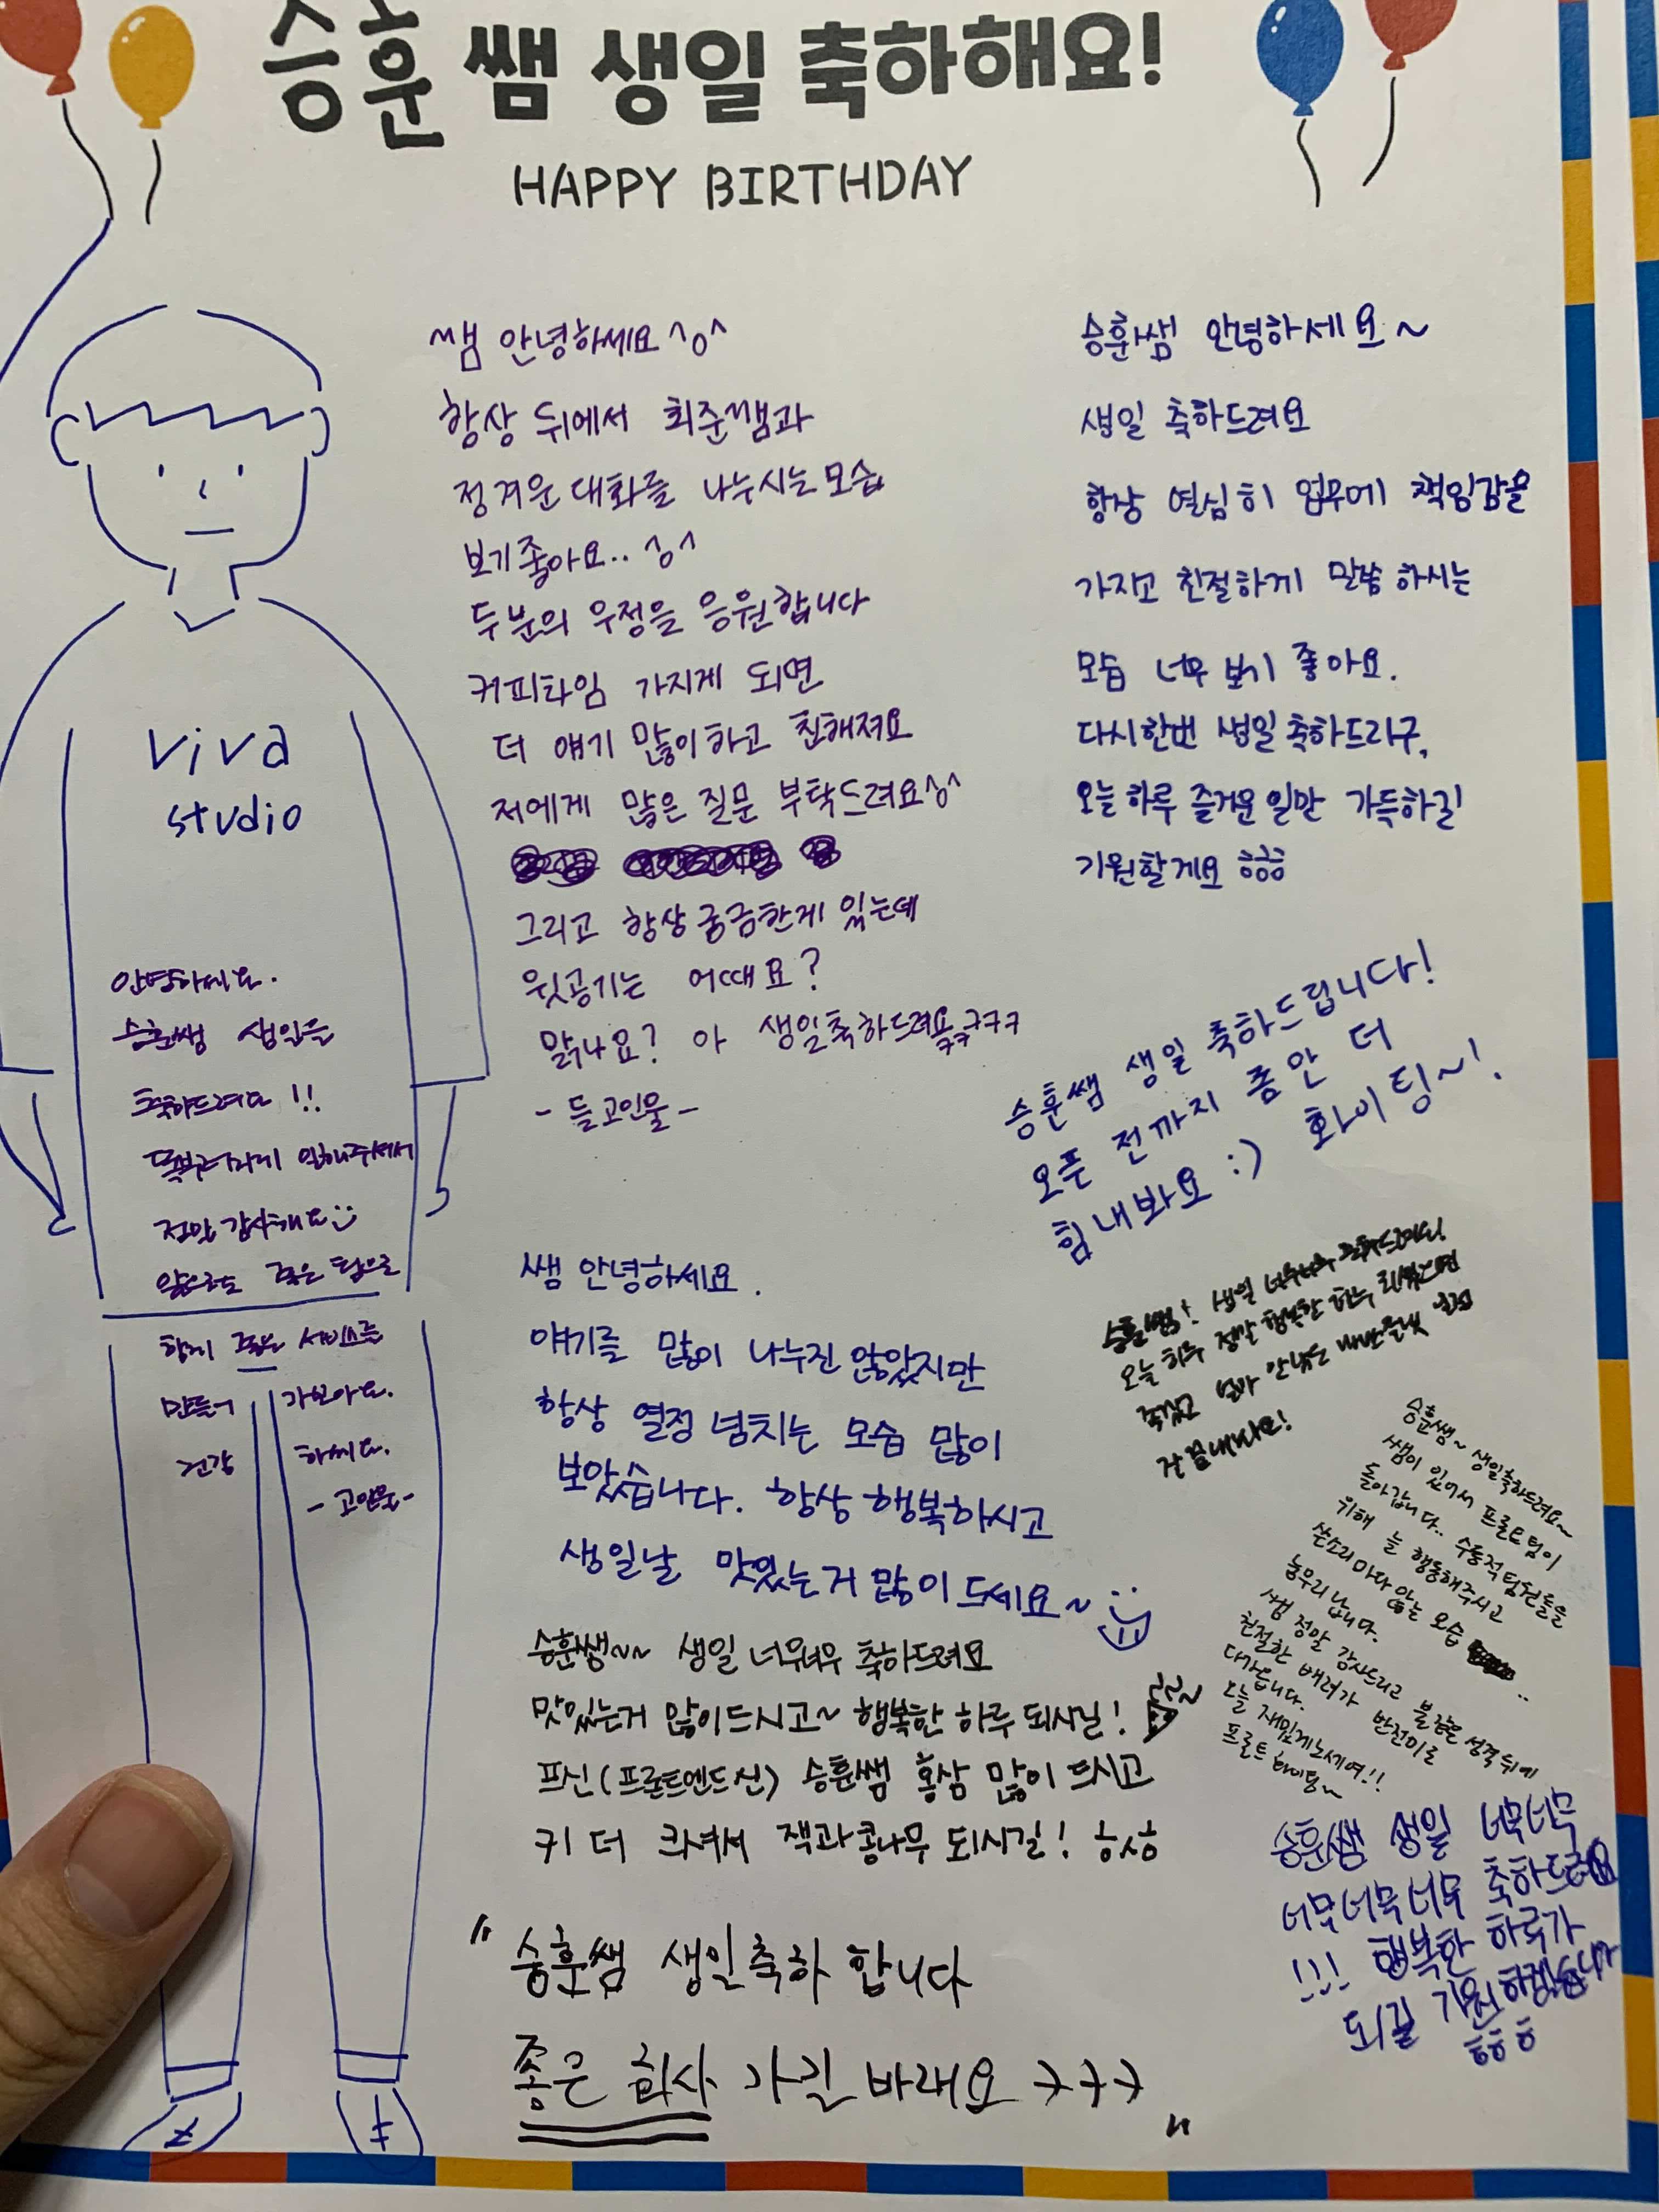 승훈 쌤 생일 축하해요!
HAPPY BIRTHDAY
쌤 안녕하세요^o^
항상 뒤에서 희준쌤과
정겨운 대화를 나누시는 모습
보기 좋아요.. ^o^
두분의 우정을 응원합니다
커피타임 가지게 되면
더 얘기 많이 하고 친해져요
저에게 많은 질문 부탁드려요^o^
그리고 항상 궁금한게 있는데
윗공기는 어때요?
맑나요? 아 생일축하드려요ㅋㅋㅋㅋㅋ
- 들고인물 -
승훈쌤 안녕하세요~
생일 축하드려요
항상 열심히 업무에 책임감을
가지고 친절하게 말씀 하시는
모습 너무 보기 좋아요.
다시한번 생일 축하드리구,
오늘 하루 즐거운 일만 가득하길
기원할게요 ㅎㅎㅎ
viva
studio
안녕하세요.
승훈쌤 생일을
축하드려요!!
똑부러지게 일해주셔서
정말 감사해요
앞으로도 좋은 팀으로
함께 좋은 서비스를
만들어 가보아요.
건강 하세요.
- 고인물 -
승훈쌤 생일 축하드립니다!
오픈 전까지 좀만 더
힘내봐요 :) 화이팅~!
쌤 안녕하세요.
얘기를 많이 나누진 않았지만
항상 열정 넘치는 모습 많이
보았습니다. 항상 행복하시고
생일날 맛있는거 많이 드세요~
승훈쌤! 생일 너무너무 축하드려요!
오늘 하루 정말 행복한 하루 되셨으면
좋겠고 얼마 안남은
잘 끝내봐요!
승훈쌤~ 생일축하드려요~
쌤이 있어서 프론트팀이
돌아갑니다.. 수동적 팀원들을
위해 늘 행동해주시고
쓴소리 마다않는 모습 ..
눈물이 납니다.
쌤 정말 감사드리고 불같은 성격 뒤에
친절한 배려가 반전미를
더합니다.
오늘 재밌게노세여!!
프론트 화이팅~
승훈쌤~~ 생일 너무너무 축하드려요
맛있는거 많이드시고~ 행복한 하루 되시길!
프신(프론트엔드신) 승훈쌤 홍삼 많이 드시고
키 더 크셔서 잭과콩나무 되시길! ㅎㅎ
승훈쌤 생일 너무너무
너무너무너무 축하드려요
!!! 행복한 하루가
되길 기원하겠습니다
ㅎㅎㅎ
" 승훈쌤 생일축하 합니다
좋은 회사 가길 바래요 ㅋㅋㅋ "